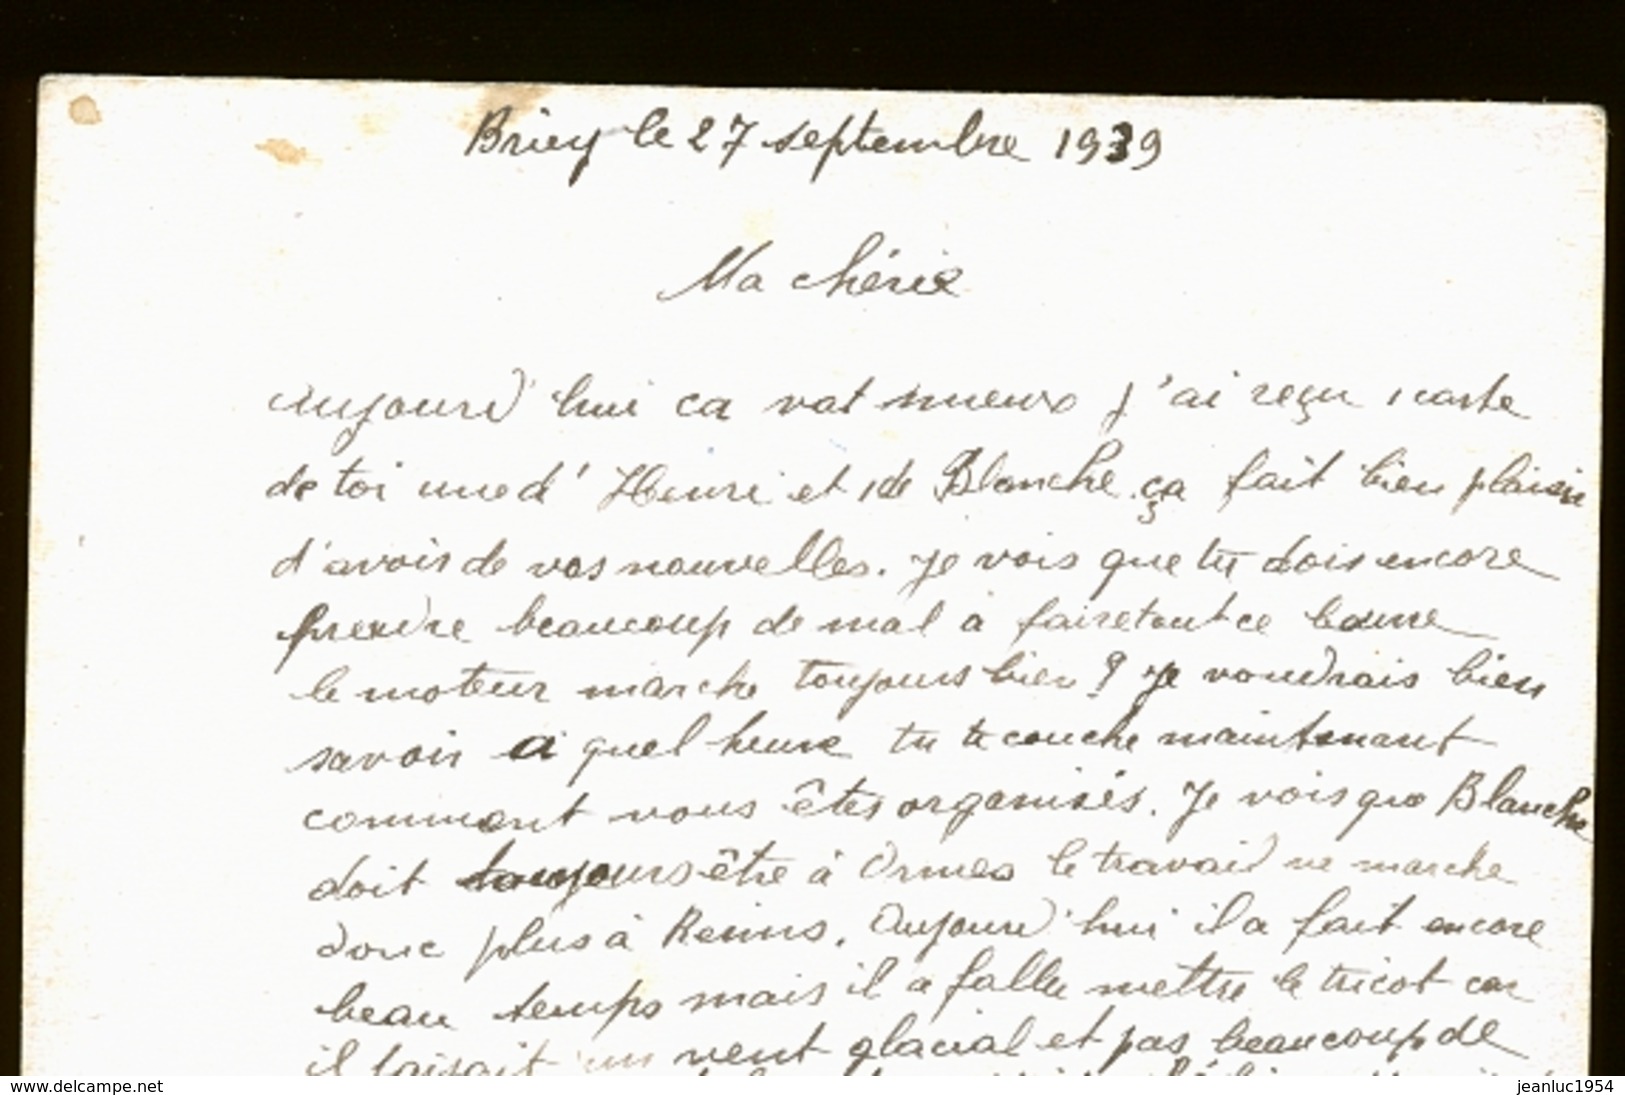 Briey le 27 septembre 1939
Ma chérie
aujourd'hui ca vat mieux j'ai reçu 1 carte
de toi une d'Henri et 1 de Blanche ça fait bien plaisir
d'avoir de vos nouvelles. Je vois que tu dois encore
prendre beaucoup de mal à faire tout ce
le moteur marche toujours bien ? Je voudrais bien
savoir a quel heure tu te couche maintenant
comment vous êtes organisés. Je vois que Blanche
doit toujours être à Ormes le travail ne marche
donc plus à Reims. Aujourd'hui il a fait encore
beau temps mais il a fallu mettre le tricot car
il faisait un vent glacial et pas beaucoup de
www.delcampe.net
jeanluc1954